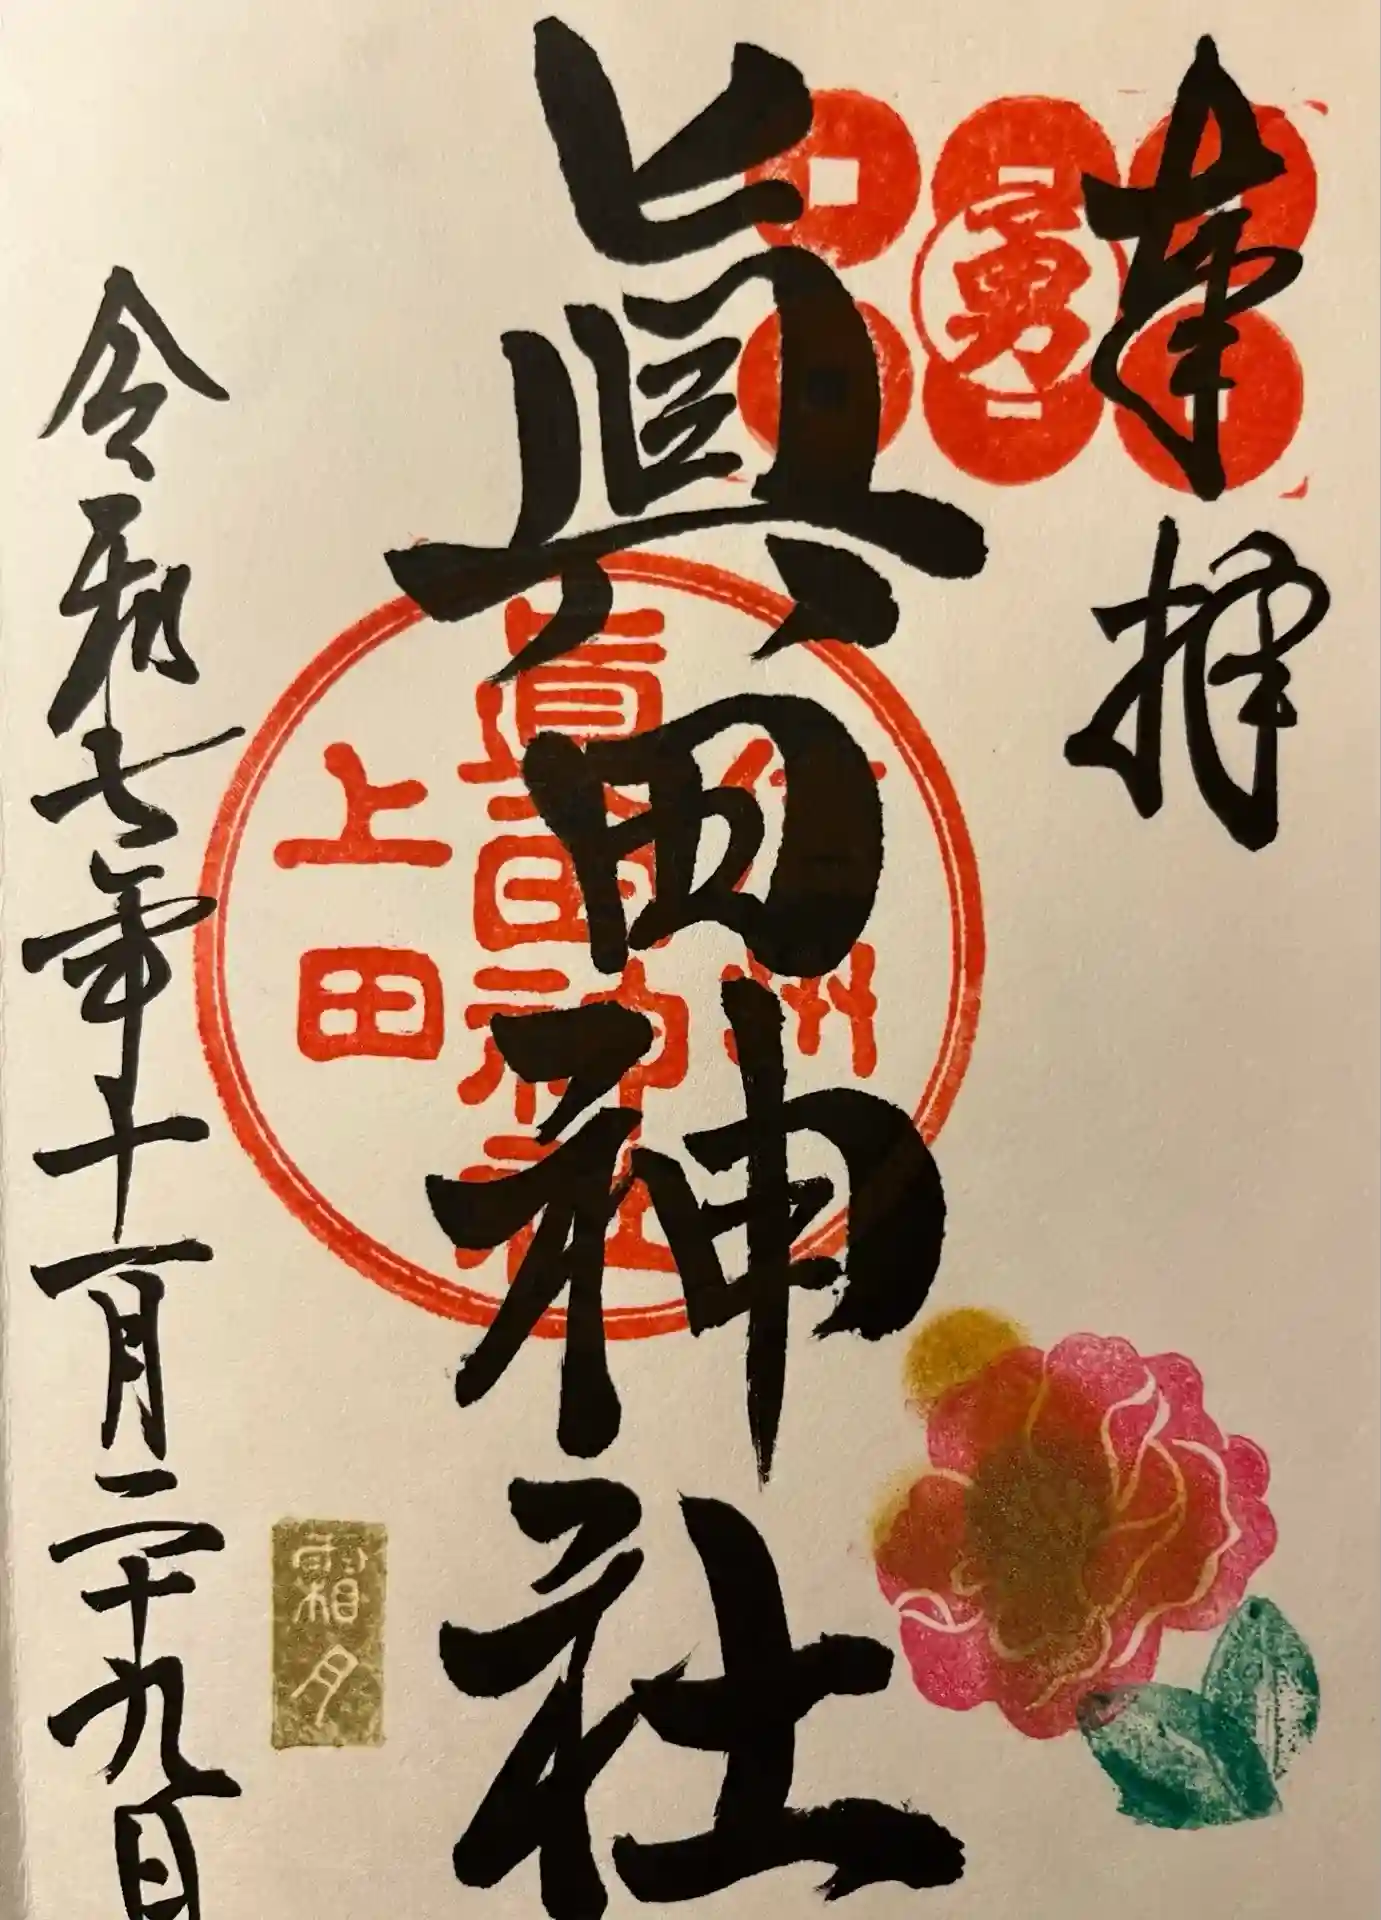 奉拝
勇
眞田神社
信州
眞田神社
上田
霜月
令和七年十一月二十九日